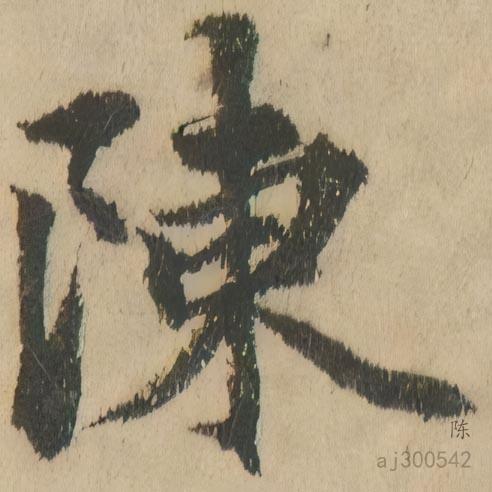 陳
陈
aj300542